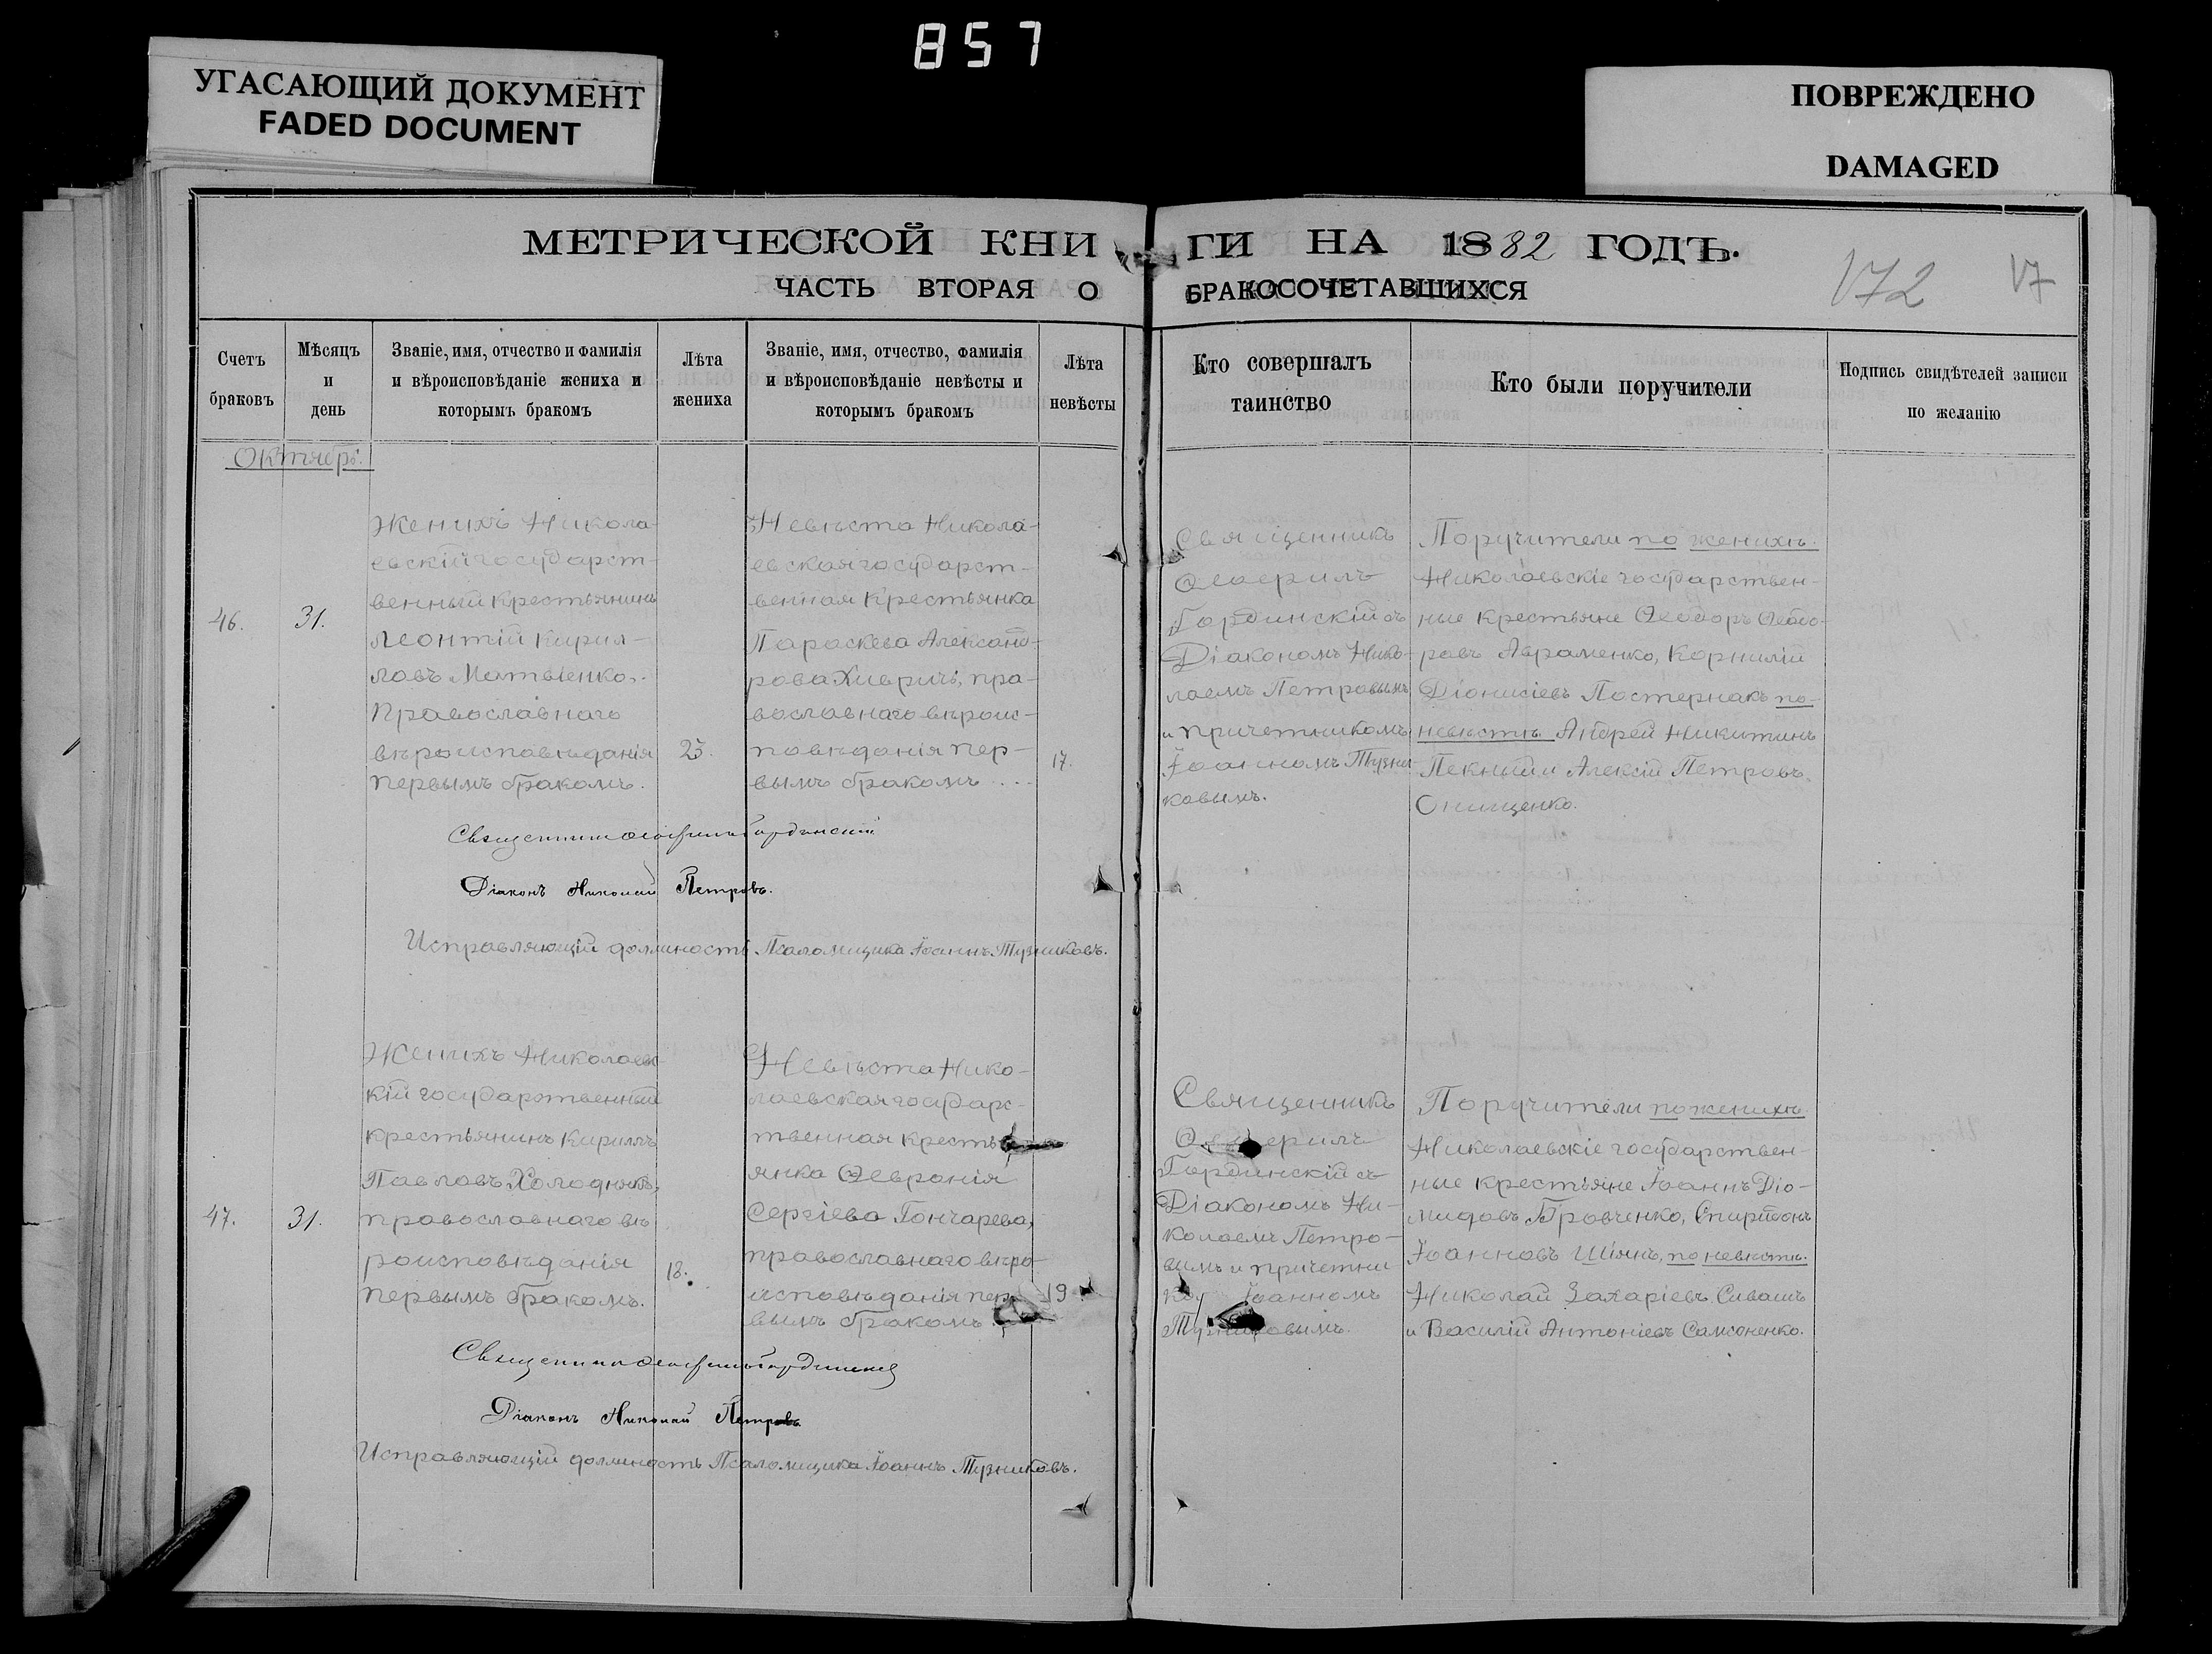 857
УГАСАЮЩИЙ ДОКУМЕНТ
FADED DOCUMENT
ПОВРЕЖДЕНО
DAMAGED
МЕТРИЧЕСКОЙ КНИГИ НА 1882 ГОДЪ.
172 17
ЧАСТЬ ВТОРАЯ О БРАКОСОЧЕТАВШИХСЯ
Счетъ
браковъ
Мѣсяцъ
и
день
Званіе, имя, отчество и фамилія
и вѣроисповѣданіе жениха и
которымъ бракомъ
Лѣта
жениха
Званіе, имя, отчество, фамилія
и вѣроисповѣданіе невѣсты и
которымъ бракомъ
Лѣта
невѣсты
Кто совершалъ
таинство
Кто были поручители
Подпись свидѣтелей записи
по желанію
Октябрь.
46.
31.
Женихъ Никола-
евскій государст-
венный крестьянинъ
Леонтій Кирил-
ловъ Матвіенко.
Православнаго
вѣроисповѣданія
первымъ бракомъ.
23.
Невѣста Никола-
евская государст-
венная крестьянка
Параскева Александ-
рова Хивричъ, пра-
вославнаго вѣроис-
повѣданія пер-
вымъ бракомъ
17.
Священникъ
Ѳеофилъ
Гординскій съ
Діакономъ Нико-
лаемъ Петровымъ
и причетникомъ
Іоанномъ Тузни-
ковымъ.
Поручители по женихѣ.
Николаевскіе государствен-
ные крестьяне Ѳеодоръ Ѳеодо-
ровъ Авраменко, Корнилій
Діонисіевъ Постернакъ по
невѣстѣ Андрей Никитинъ
Пекный и Алексій Петровъ
Онищенко.
Священникъ Ѳеофилъ Гординскій
Діаконъ Николай Петровъ.
Исправляющій должность Псаломщика Іоаннъ Тузниковъ.
47.
31.
Женихъ Николаевс
кій государственный
крестьянинъ Кириллъ
Павловъ Холоднякъ,
православнаго вѣ
роисповѣданія
первымъ бракомъ.
18.
Невѣста Нико-
лаевская государс-
твенная кресть
янка Ѳевронія
Сергіева Гончарева,
православнаго вѣро-
исповѣданія пер
вымъ бракомъ
19.
Священникъ
Ѳеофилъ
Гординскій съ
Діакономъ Ни-
колаемъ Петро-
вымъ и причетни
ко Іоанномъ
Тузниковымъ.
Поручители по женихѣ
Николаевскіе государствен-
ные крестьяне Іоаннъ Діо-
мидовъ Бровченко, Спиридонъ
Іоанновъ Шіянъ, по невѣстѣ.
Николай Захаріевъ Сивашъ
и Василій Антоніевъ Самсоненко.
Священникъ Ѳеофилъ Гординскій
Діаконъ Николай Петровъ
Исправляющій должность Псаломщика Іоаннъ Тузниковъ.